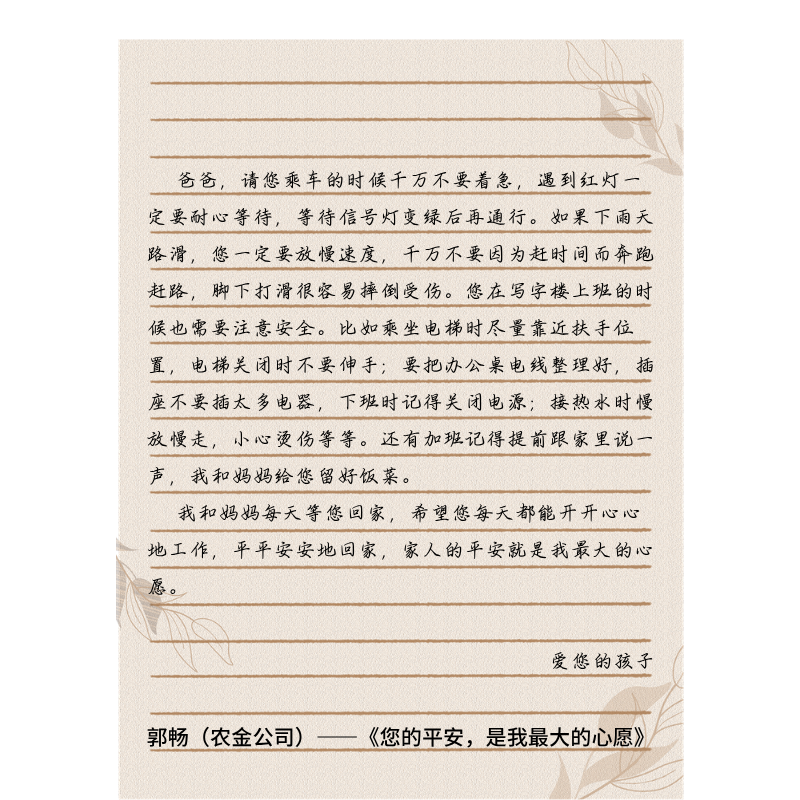 爸爸，请您乘车的时候千万不要着急，遇到红灯一
定要耐心等待，等待信号灯变绿后再通行。如果下雨天
路滑，您一定要放慢速度，千万不要因为赶时间而奔跑
赶路，脚下打滑很容易摔倒受伤。您在写字楼上班的时
候也需要注意安全。比如乘坐电梯时尽量靠近扶手位
置，电梯关闭时不要伸手；要把办公桌电线整理好，插
座不要插太多电器，下班时记得关闭电源；接热水时慢
放慢走，小心烫伤等等。还有加班记得提前跟家里说一
声，我和妈妈给您留好饭菜。
我和妈妈每天等您回家，希望您每天都能开开心心
地工作，平平安安地回家，家人的平安就是我最大的心
愿。
爱您的孩子
郭畅（农金公司）——《您的平安，是我最大的心愿》